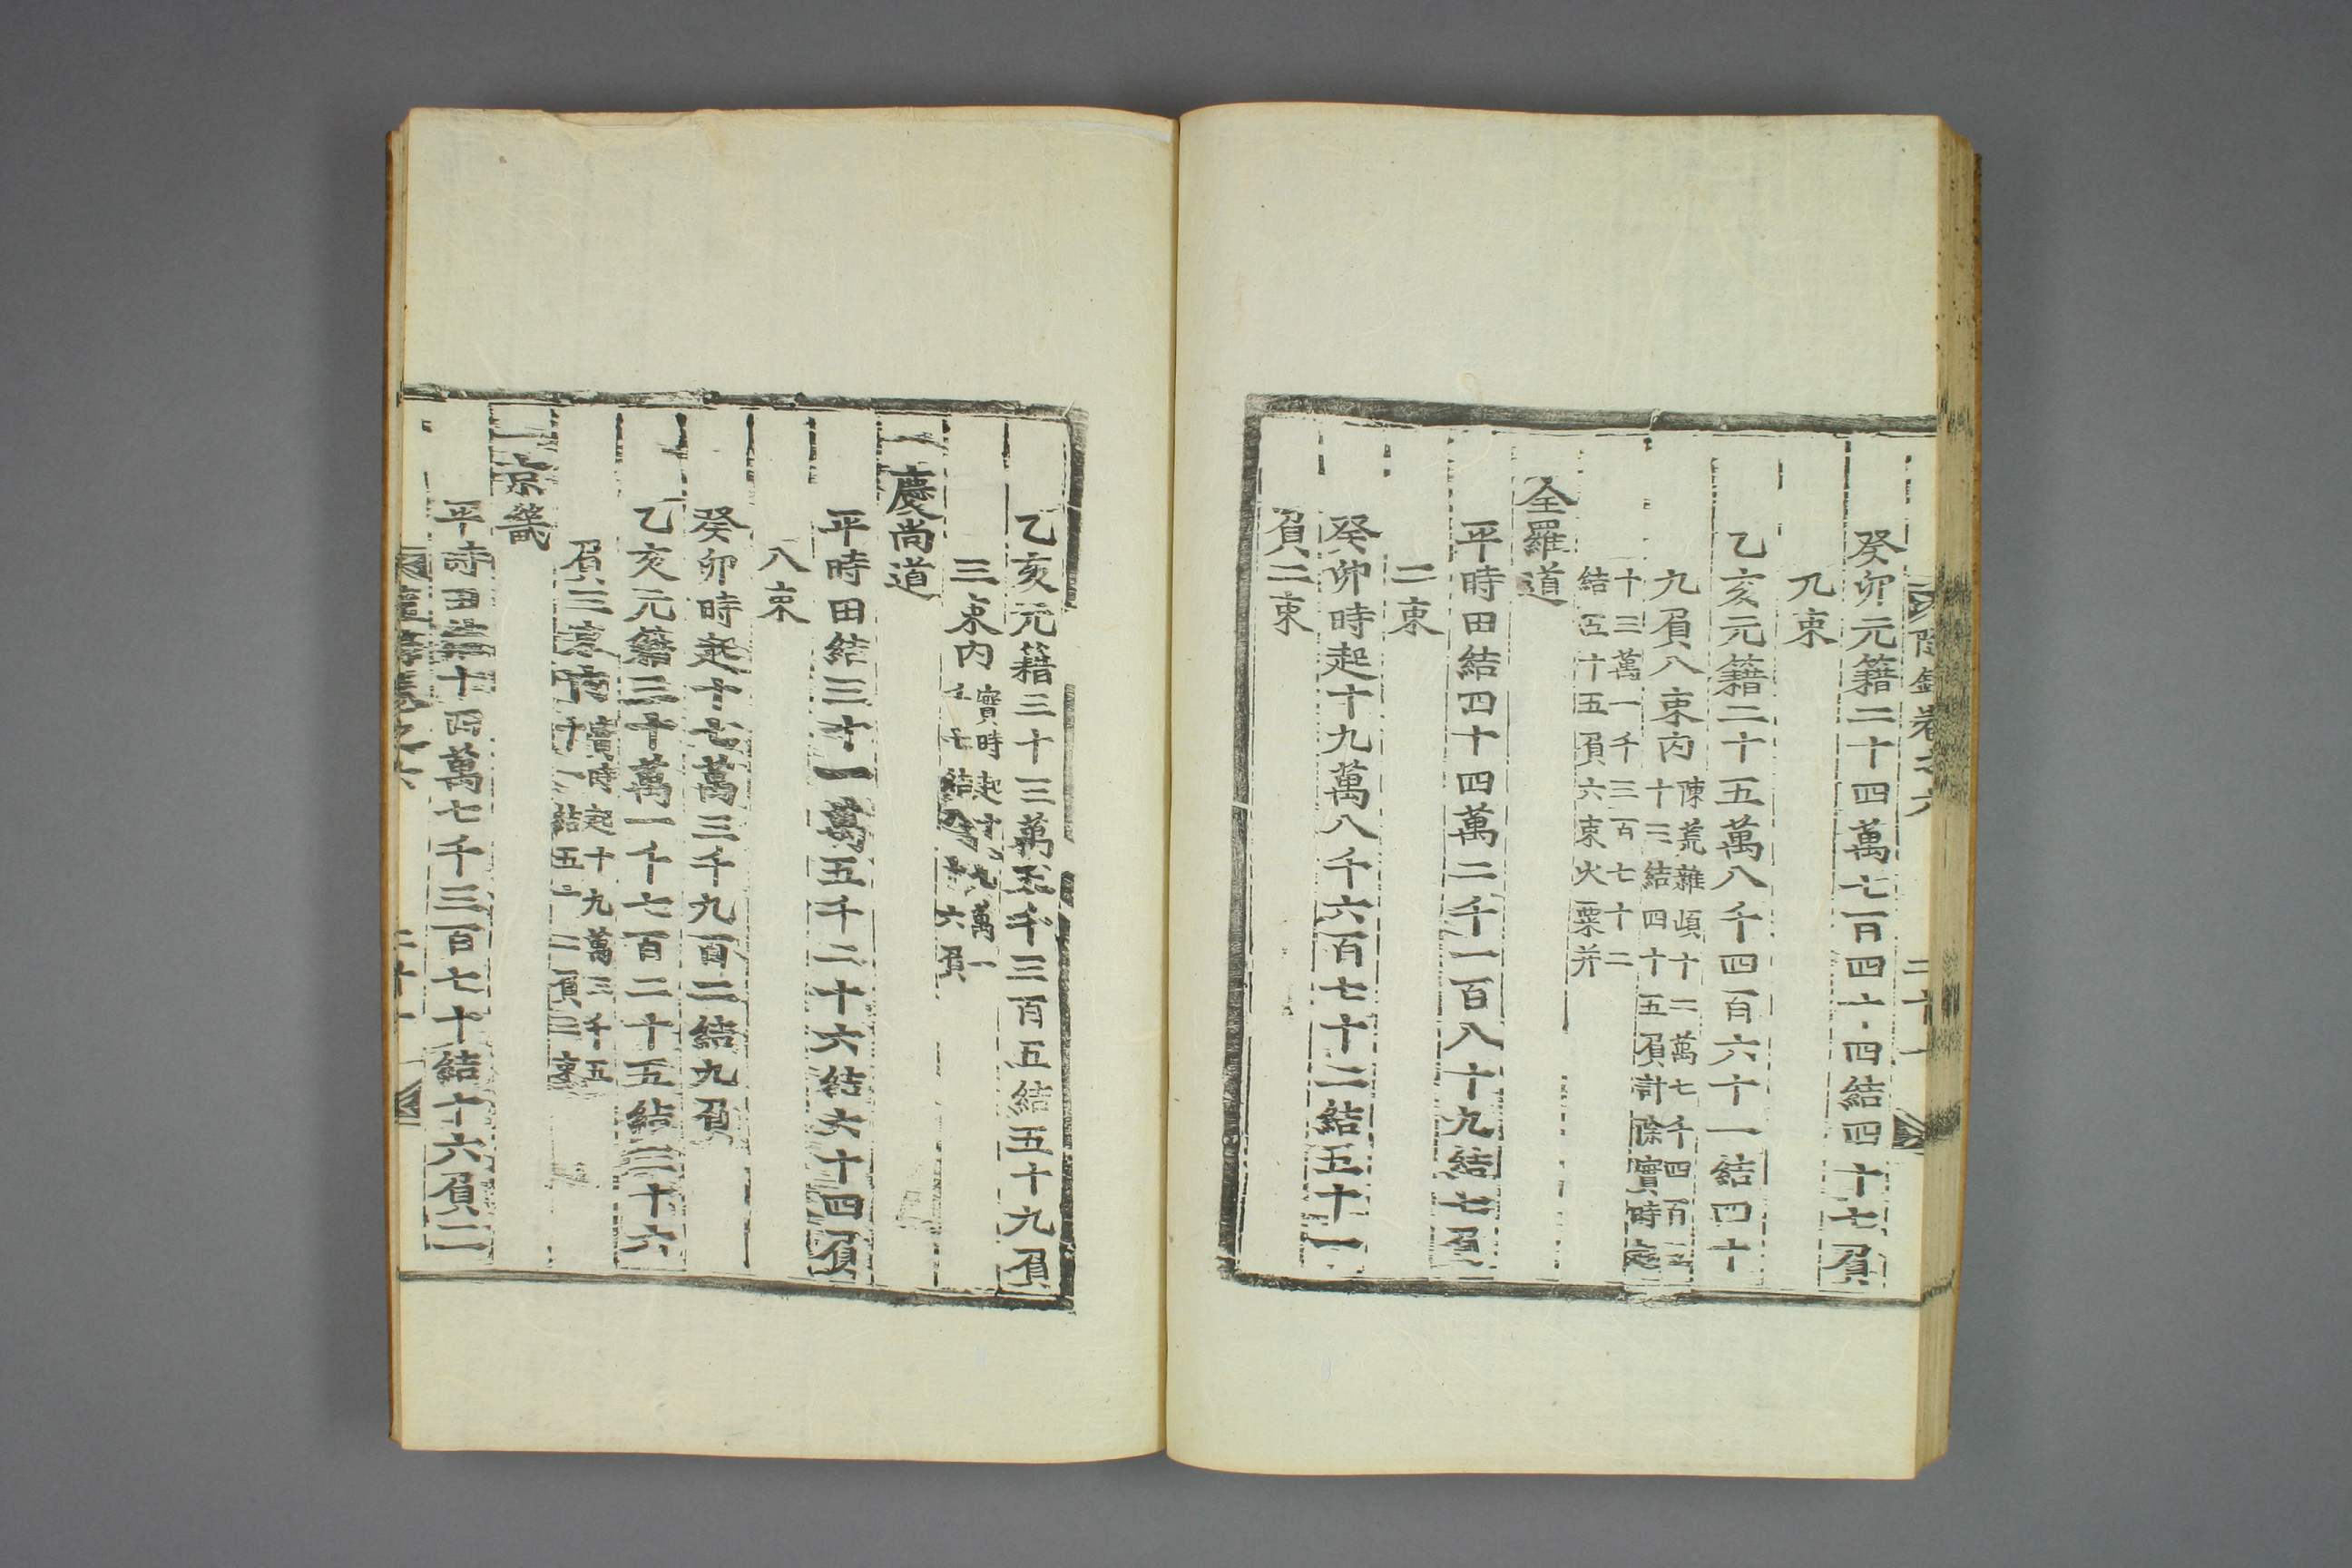 隨錄卷之六
二十一
癸卯元籍二十四萬七百四十四結四十七負
九束
乙亥元籍二十五萬八千四百六十一結四十
九負八束內陳荒雜頉十二萬七千四百
十二結四十五負計除實時起
十三萬一千三百七十二
結五十五負六束火粟并
全羅道
平時田結四十四萬二千一百八十九結七負
二束
癸卯時起十九萬八千六百七十二結五十一
負二束
乙亥元籍三十三萬五千三百五結五十九負
三束內實時起十九萬一
千七結六負
一慶尚道
平時田結三十一萬五千二十六結六十四負
八束
癸卯時起十七萬三千九百二結九負
乙亥元籍三十萬一千七百二十五結三十六
負三束內實時起十九萬三千五
十一結五十二負三束
一京畿
平時田結十四萬七千三百七十結十六負二
二十一